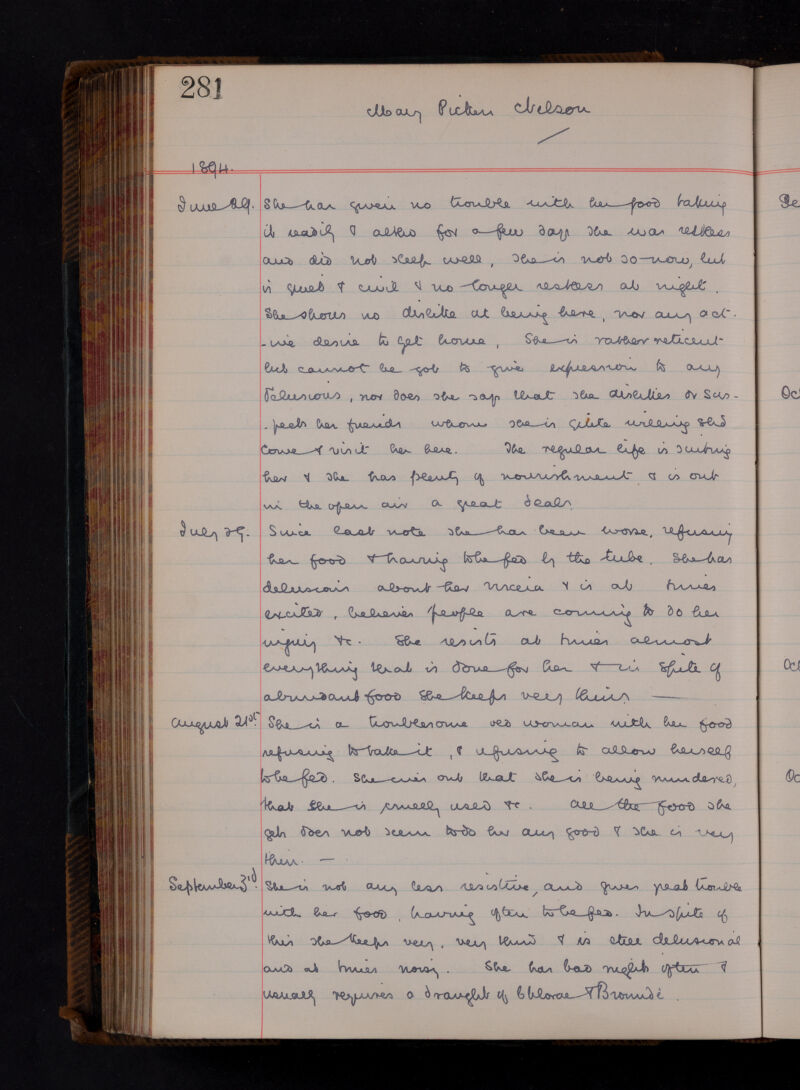 281
Mary Picken Nelson
1894.
June 29. She has given no trouble with her food taking
it readily & altho for a few days she was restless
and did not sleep well, she is not so now, but
is quiet & civil & no longer restless at night.
She shows no dislike at being here, nor any act-
-ive desire to get home, She is rather reticent
but cannot be got to give expression to any
delusions, nor does she say that she dislikes or sus-
-pects her friends whom she is quite willing shd
come & visit her here. The regular life is suiting
her & she has plenty of nourishment & is out
in the open air a great deal.
July 29. Since last note she has been worse, refusing
her food & having to be fed by the tube. She has
delusions about her viscera & is at times
excited, believes people are coming to do her
injury &c. She resists at times almost
everything that is done for her & in spite of
abundant food she keeps very thin.
August 21st. She is a troublesome old woman with her food
refusing to take it, & refusing to allow herself
to be fed. She cries out that she is being murdered,
that she is cruelly used &c. All the food she
gets does not seem to do her any good & she is very
thin. —
September 3rd. She is not any less resistive, and gives great trouble
with her food, having often to be fed. In spite of
this she keeps very, very thin & is still delusional
and at times noisy. She has bad nights often &
usually requires a draught of Chloral & Bromide.
De
Oc
Oct
Oc